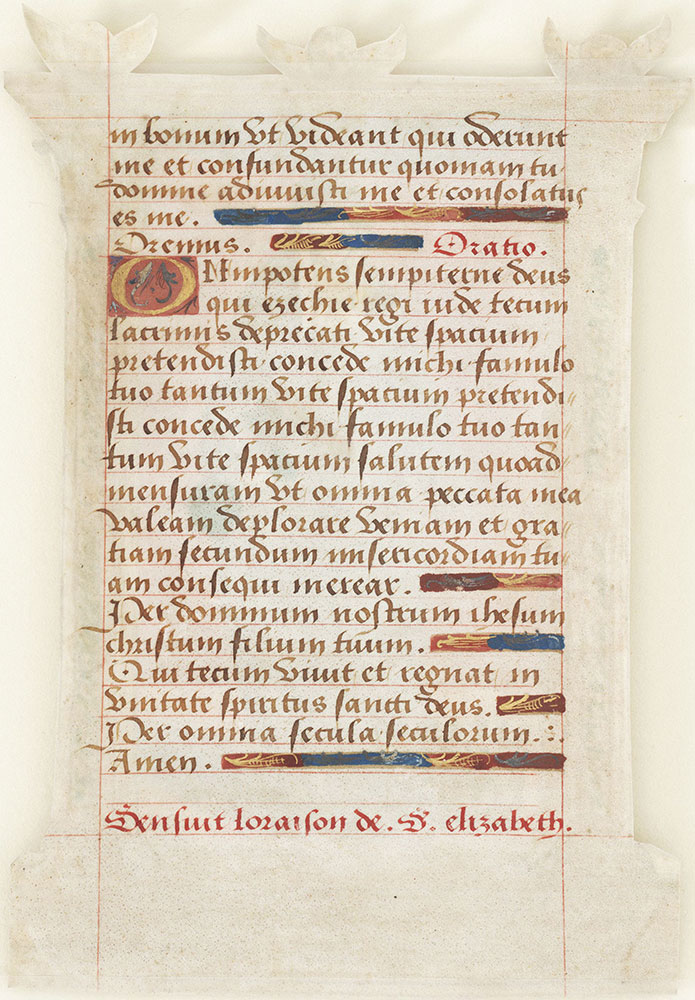 in bonum vt videant qui oderunt
me et confundantur quoniam tu
domine adiuuisti me et consolatus
es me.
Oremus. Oratio.
OMnipotens sempiterne deus
qui ezechie regi iude tecum
lacrimis deprecati vite spacium
pretendisti concede michi famulo
tuo tantum vite spacium pretendi-
sti concede michi famulo tuo tan-
tum vite spacium salutem quoad
mensuram vt omnia peccata mea
valeam deplorare veniam et gra-
tiam secundum misericordiam tu-
am consequi merear.
Per dominum nostrum ihesum
christum filium tuum.
Qui tecum viuit et regnat in
vnitate spiritus sancti deus.
Per omnia secula seculorum.
Amen.
Sensuit loraison de. S. elizabeth.